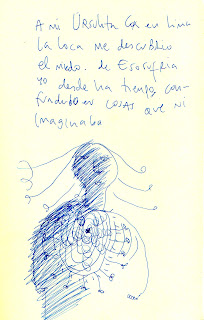 A mi Ursulita Ca en lima
la loca me descubrio
el miedo. de Eso sufria
yo desde ha tiempo con-
fundido en cosas que ni
imaginaba